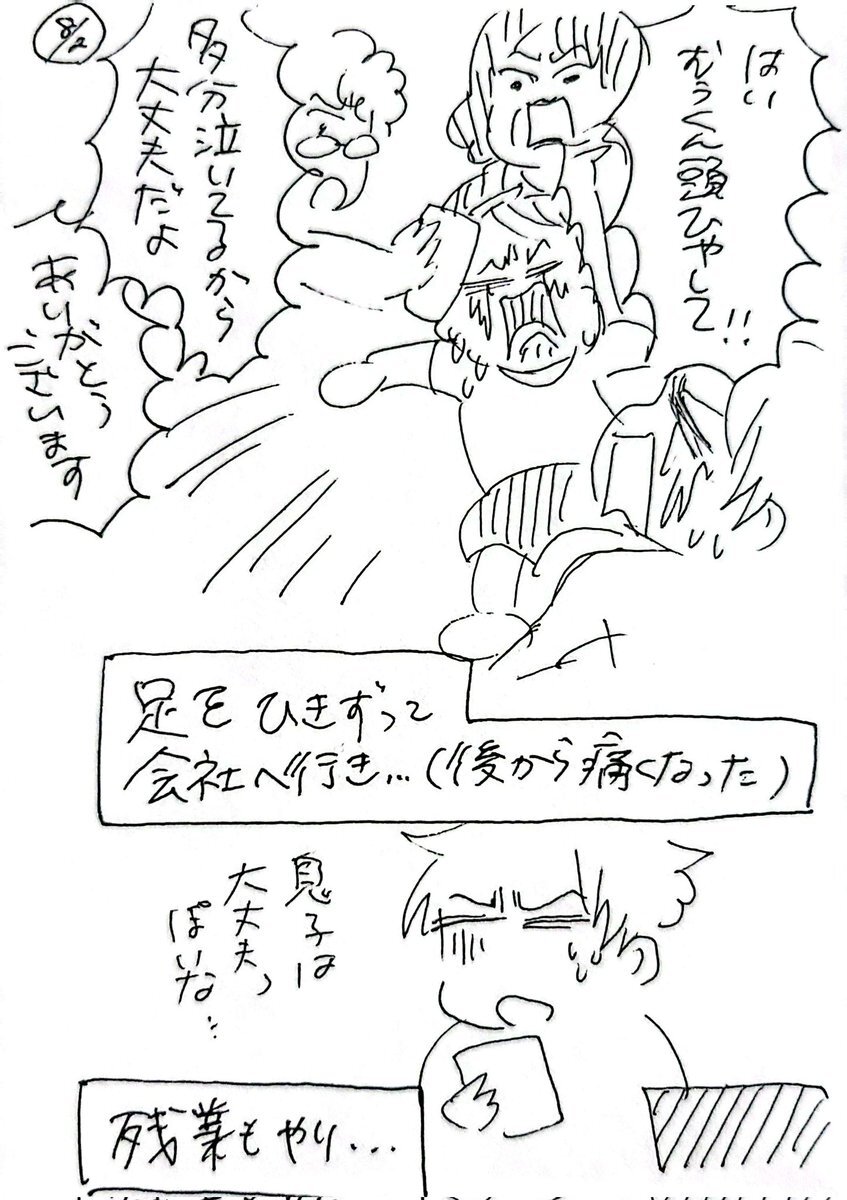 はい
むぅくん頭ひやして!!
多分泣いてるから
大丈夫だよ
8/2
ありがとう
ございます
足を ひきずって
会社へ行き…(後から痛くなった)
息子は
大丈夫っ
ぽいな…
残業もやり…